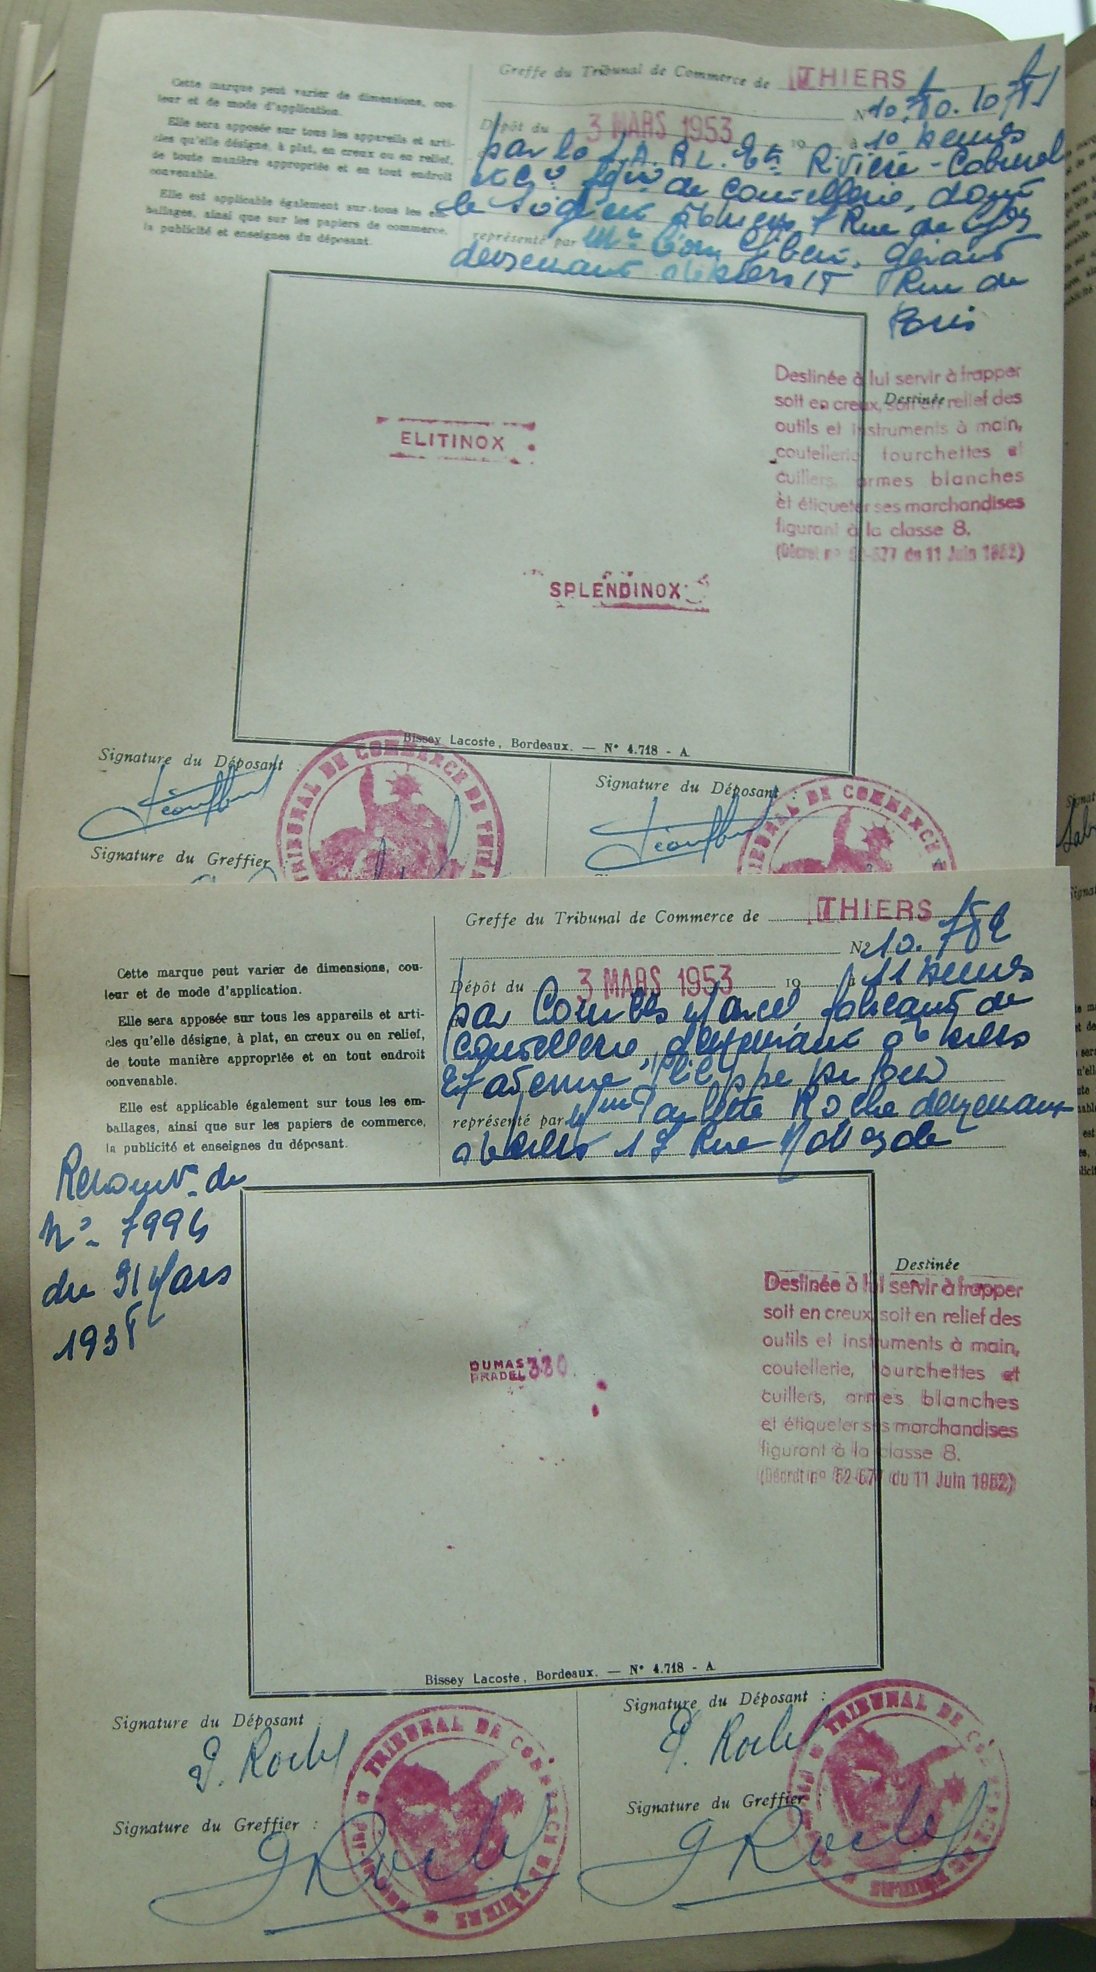 Cette marque peut varier de dimensions, cou-
leur et de mode d'application.
Elle sera apposée sur tous les appareils et arti-
cles qu'elle désigne, à plat, en creux ou en relief,
de toute manière appropriée et en tout endroit
convenable.
Elle est applicable également sur tous les em-
ballages, ainsi que sur les papiers de commerce,
la publicité et enseignes du déposant.
Greffe du Tribunal de Commerce de THIERS
Dépôt du 3 MARS 1953 19 à 10 heures
par la S.A.R.L. Ets Rivière-
de coutellerie, dont
le siège est Rue de
représenté par Mr gérant
demeurant Rue de
Paris
ELITINOX
SPLENDINOX
Destinée
Destinée à lui servir à frapper
soit en creux, soit en relief des
outils et instruments à main,
coutellerie, fourchettes et
cuillers, armes blanches
et étiqueter ses marchandises
figurant à la classe 8.
(Décret n° 52-677 du 11 Juin 1952)
Bissey Lacoste, Bordeaux. — N° 4.718 - A
Signature du Déposant :
Signature du Déposant :
Signature du Greffier :
TRIBUNAL DE COMMERCE DE THIERS
TRIBUNAL DE COMMERCE
Cette marque peut varier de dimensions, cou-
leur et de mode d'application.
Elle sera apposée sur tous les appareils et arti-
cles qu'elle désigne, à plat, en creux ou en relief,
de toute manière appropriée et en tout endroit
convenable.
Elle est applicable également sur tous les em-
ballages, ainsi que sur les papiers de commerce,
la publicité et enseignes du déposant.
Greffe du Tribunal de Commerce de THIERS
N° 10.782
Dépôt du 3 MARS 1953 19 à 11 heures
par Marcel, fabricant de
coutellerie, demeurant à Thiers
représenté par Mme Paulette Roche demeurant
à Thiers 17 Rue
Renouvt de
N° 7994
du Mars
1938
DUMAS
PRADEL 380
Destinée
Destinée à lui servir à frapper
soit en creux, soit en relief des
outils et instruments à main,
coutellerie, fourchettes et
cuillers, armes blanches
et étiqueter ses marchandises
figurant à la classe 8.
(Décret n° 52-677 du 11 Juin 1952)
Bissey Lacoste, Bordeaux. — N° 4.718 - A
Signature du Déposant :
Signature du Déposant :
P. Roche
P. Roche
Signature du Greffier :
Signature du Greffier :
TRIBUNAL DE COMMERCE DE THIERS
TRIBUNAL DE COMMERCE DE THIERS